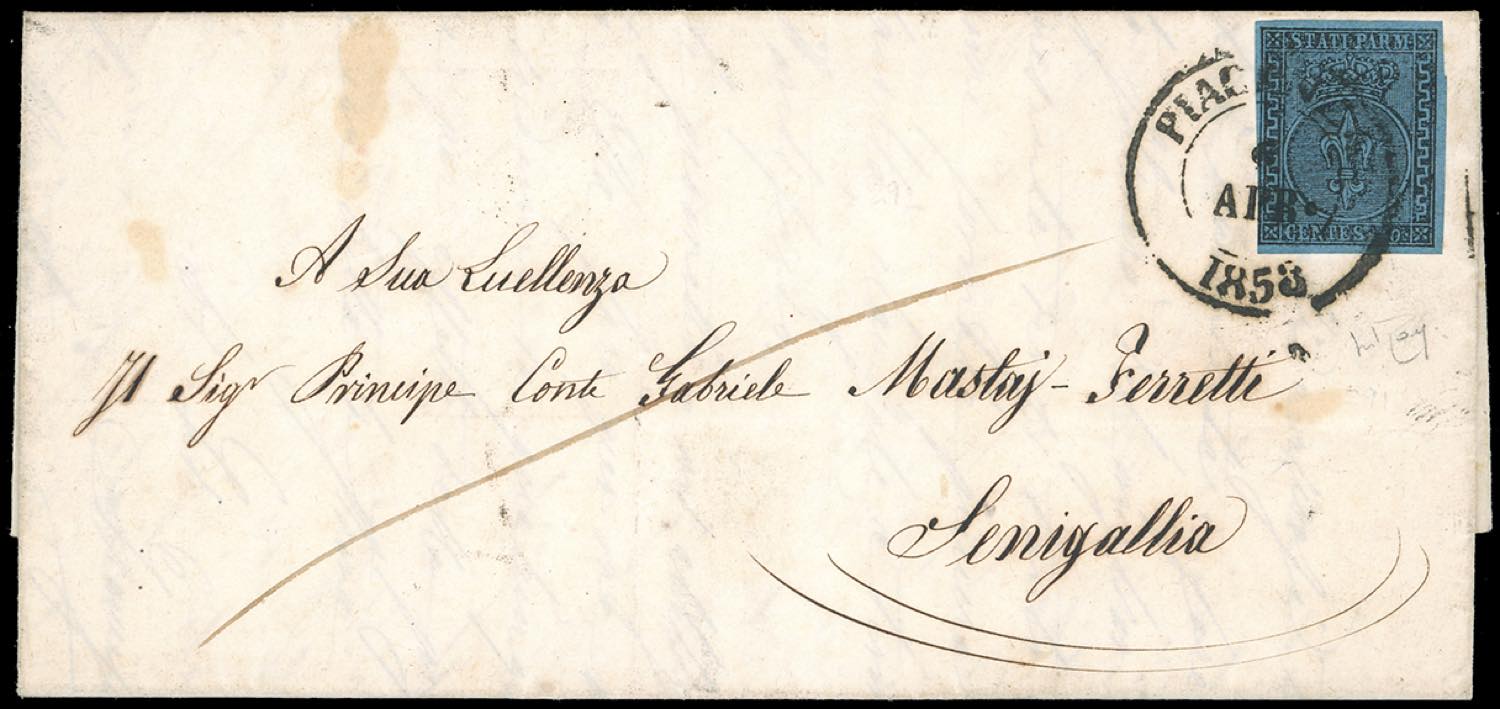 STATI PARM
PIAC
APR.
CENTES 40
1853
A Sua Eccellenza
Il Sigr Principe Conte Gabriele Mastaj-Ferretti
Senigallia